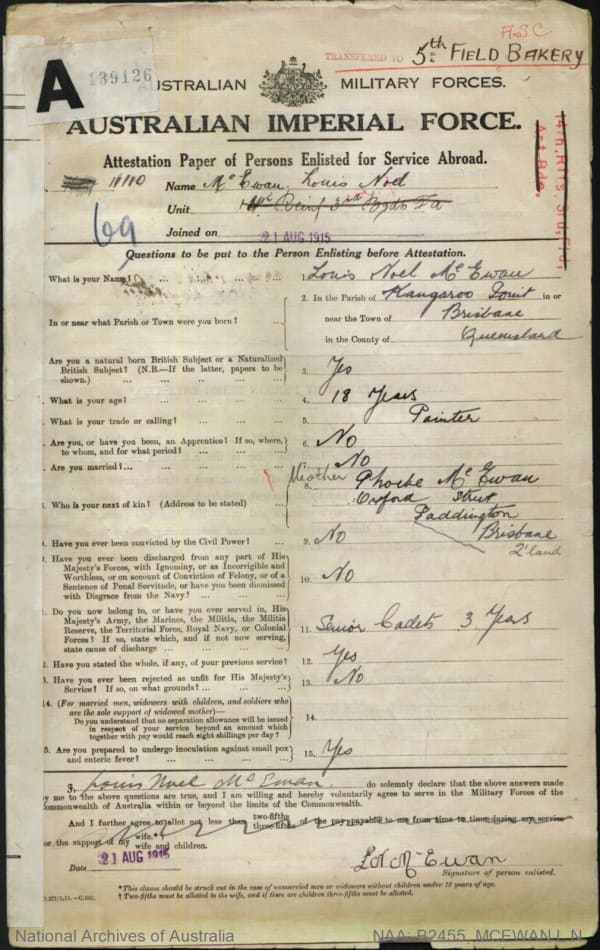 A.S.C
TRANSFERRED TO 5th FIELD BAKERY
A
139126
AUSTRALIAN MILITARY FORCES.
AUSTRALIAN IMPERIAL FORCE.
Attestation Paper of Persons Enlisted for Service Abroad.
Name McEwan, Louis Noel
Unit
Joined on 21 AUG 1915
Questions to be put to the Person Enlisting before Attestation.
What is your Name? ... 1. Louis Noel McEwan
In or near what Parish or Town were you born? ... 2. In the Parish of Kangaroo Point in or
near the Town of Brisbane
in the County of Queensland
Are you a natural born British Subject or a Naturalized
British Subject? (N.B.—If the latter, papers to be
shown.) ... 3. Yes
What is your age? ... 4. 18 Years
What is your trade or calling? ... 5. Painter
Are you, or have you been, an Apprentice? If so, where,
to whom, and for what period? ... 6. No
Are you married? ... 7. No
Who is your next of kin? (Address to be stated) ... 8. Mother Phoebe McEwan
Oxford Street
Paddington
Brisbane
Q'land
9. Have you ever been convicted by the Civil Power? ... 9. No
Have you ever been discharged from any part of His
Majesty's Forces, with Ignominy, or as Incorrigible and
Worthless, or on account of Conviction of Felony, or of a
Sentence of Penal Servitude, or have you been dismissed
with Disgrace from the Navy? ... 10. No
Do you now belong to, or have you ever served in, His
Majesty's Army, the Marines, the Militia, the Militia
Reserve, the Territorial Force, Royal Navy, or Colonial
Forces? If so, state which, and if not now serving,
state cause of discharge ... 11. Senior Cadets 3 Years
Have you stated the whole, if any, of your previous service? 12. Yes
Have you ever been rejected as unfit for His Majesty's
Service? If so, on what grounds? ... 13. No
14. (For married men, widowers with children, and soldiers who
are the sole support of widowed mother)—
Do you understand that no separation allowance will be issued
in respect of your service beyond an amount which
together with pay would reach eight shillings per day? 14.
15. Are you prepared to undergo inoculation against small pox
and enteric fever? ... 15. Yes
3, Louis Noel McEwan, do solemnly declare that the above answers made
by me to the above questions are true, and I am willing and hereby voluntarily agree to serve in the Military Forces of the
Commonwealth of Australia within or beyond the limits of the Commonwealth.
And I further agree to allot not less than two-fifths three-fifths of the pay payable to me from time to time during my service
for the support of my wife.*† wife and children.
Date 21 AUG 1915
L N McEwan
Signature of person enlisted.
*This clause should be struck out in the case of unmarried men or widowers without children under 18 years of age.
† Two-fifths must be allotted to the wife, and if there are children three-fifths must be allotted.
National Archives of Australia
NAA: B2455, MCEWAN L N